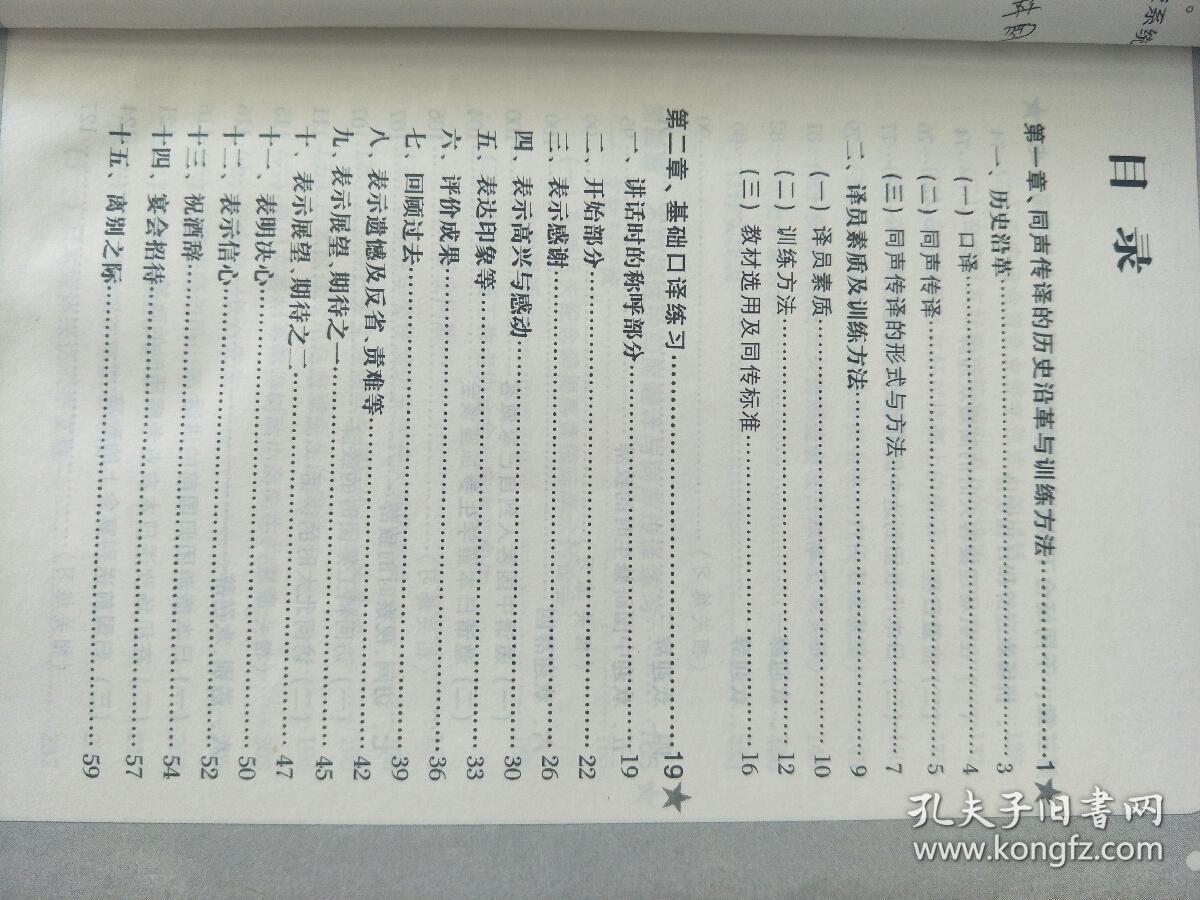 目 录
★第一章、同声传译的历史沿革与训练方法……1★
一、历史沿革……3
(一)口译……4
(二)同声传译……5
(三)同声传译的形式与方法……7
二、译员素质及训练方法……9
(一)译员素质……10
(二)训练方法……12
(三)教材选用及同传标准……16
第二章、基础口译练习……19★
一、讲话时的称呼部分……19
二、开始部分……22
三、表示感谢……26
四、表示高兴与感动……30
五、表达印象等……33
六、评价成果……36
七、回顾过去……39
八、表示遗憾及反省、责难等……42
九、表示展望、期待之一……45
十、表示展望、期待之二……47
十一、表明决心……50
十二、表示信心……52
十三、祝酒辞……54
十四、宴会招待……57
十五、离别之际……59
孔夫子旧书网
www.kongfz.com